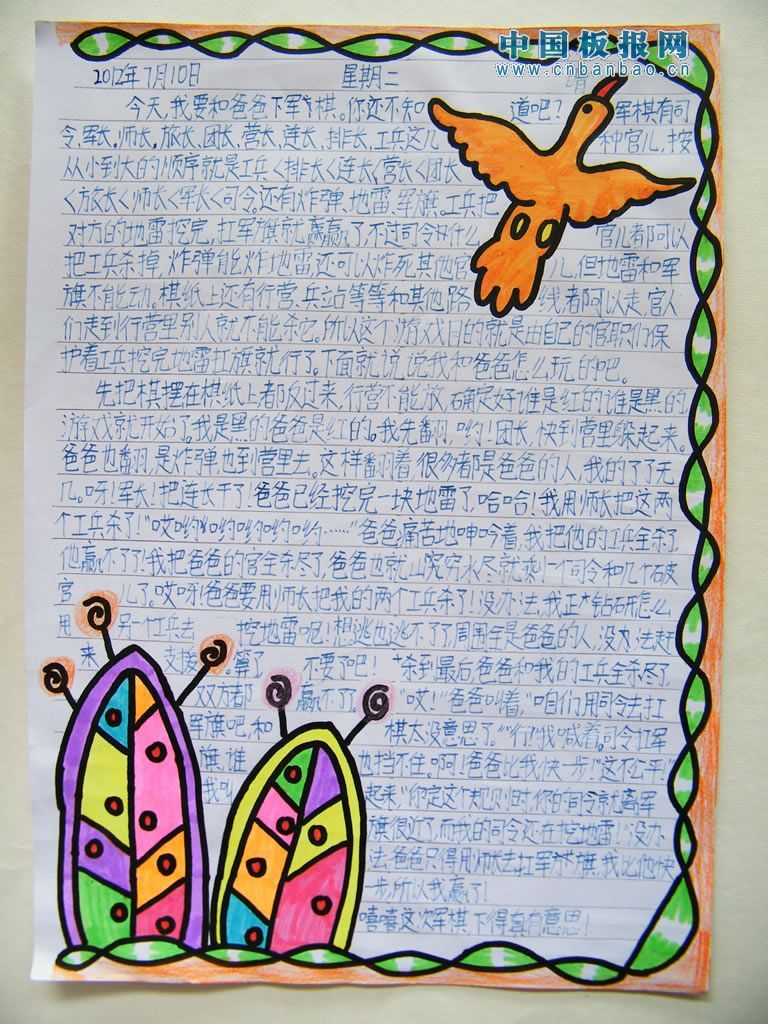 中国板报网
www.cnbanbao.cn
2012年7月10日 星期二 晴
今天,我要和爸爸下军棋。你还不知道吧?军棋有司
令,军长,师长,旅长,团长,营长,连长,排长,工兵这几种官儿,按
从小到大的顺序就是工兵<排长<连长<营长<团长
<旅长<师长<军长<司令,还有炸弹,地雷,军旗。工兵把
对方的地雷挖完,扛军旗就赢了,不过司令和什么官儿都可以
把工兵杀掉,炸弹能炸地雷还可以炸死其他官儿,但地雷和军
旗不能动,棋纸上还有行营,兵站等等和其他路线都可以走,官人
们走到行营里别人就不能杀它。所以这个游戏目的就是由自己的官职们保
护着工兵挖完地雷扛旗就行了。下面就说说我和爸爸怎么玩的吧。
先把棋摆在棋纸上都反过来,行营不能放,确定好谁是红的谁是黑的,
游戏就开始了。我是黑的爸爸是红的。我先翻,哟!团长,快到营里躲起来。
爸爸也翻,是炸弹也到营里去。这样翻着很多都是爸爸的人,我的了了无
几。呀!军长!把连长干了!爸爸已经挖完一块地雷了,哈哈!我用师长把这两
个工兵杀了!"哎哟哟哟哟哟哟……"爸爸痛苦地呻吟着,我把他的工兵全杀了,
他赢不了了!我把爸爸的官全杀尽了,爸爸也就山穷水尽就剩一个司令和几个破
官儿了。哎呀!爸爸要用师长把我的两个工兵杀了!没办法,我正钻研怎么
用另一个工兵去挖地雷呢!想逃也逃不了了,周围全是爸爸的人,没办法赶
来支援。算了不要了吧!杀到最后,爸爸和我的工兵全杀尽了,
双方都赢不了了。"哎!"爸爸叫着,"咱们用司令去扛
军旗吧,和棋太没意思了。""行!"我喊着。司令扛军
旗,谁也挡不住。啊!爸爸比我快一步!"这不公平!"
我叫起来"你定这个规则时,你的司令就离军
旗很近了,而我的司令还在挖地雷!"没办
法,爸爸只得用师长去扛军旗,我比他快
一步,所以我赢了!
嘻嘻这次军棋,下得真有意思!